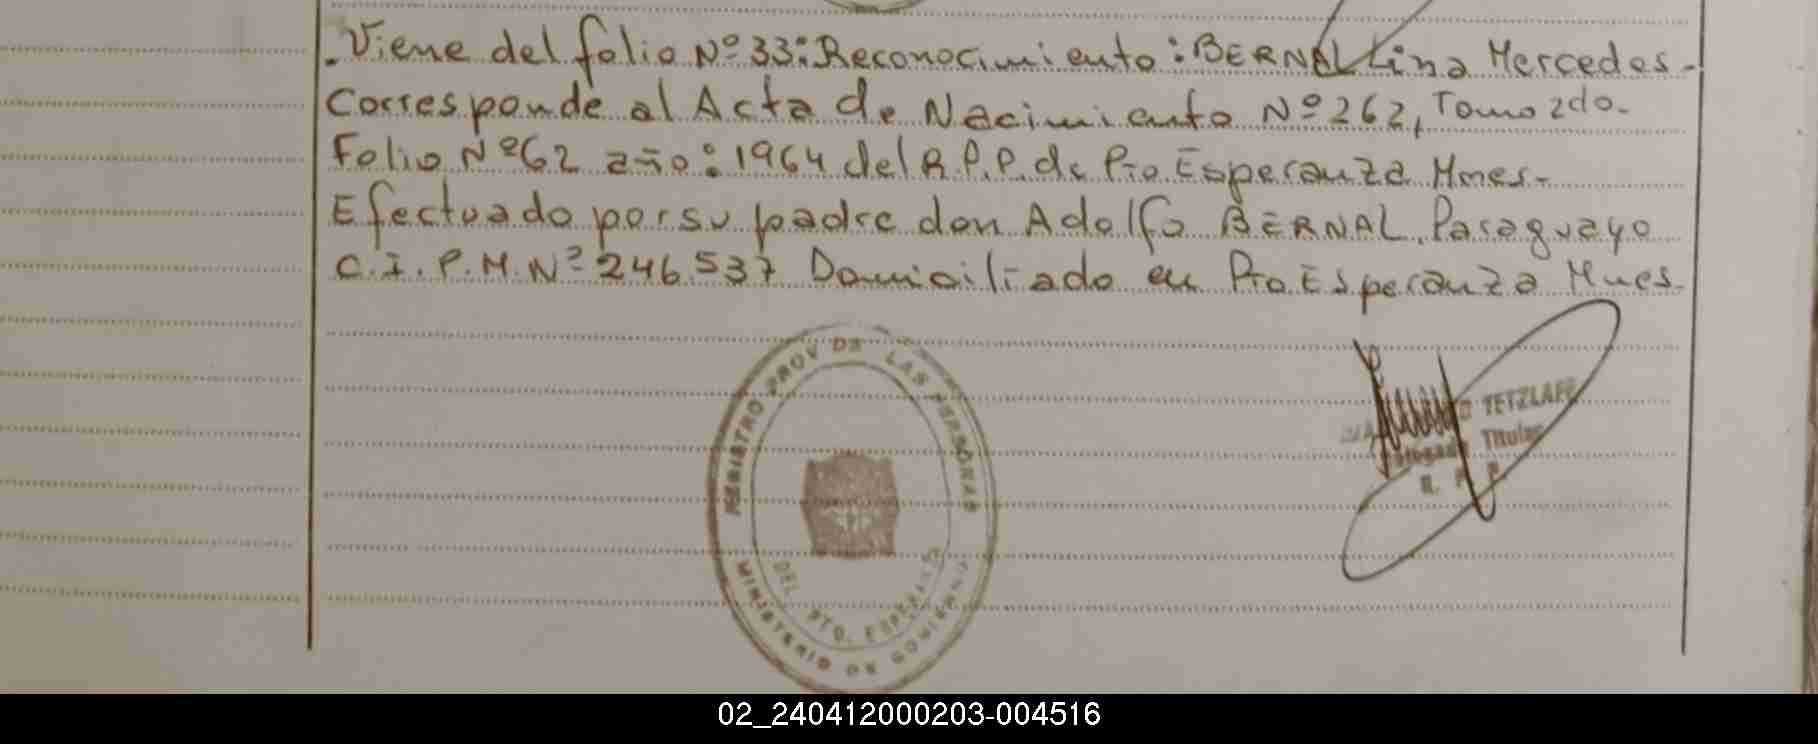 .Viene del folio Nº 33: Reconocimiento: BERNAL Lina Mercedes-
Corresponde al Acta de Nacimiento Nº 262, Tomo 2do-
Folio Nº 62 año: 1964 del R.P.P. de Pto Esperanza Mnes-
Efectuado por su padre don Adolfo BERNAL, Paraguayo
C.I.P.M. Nº 246.537 Domiciliado en Pto Esperanza Mnes-
REGISTRO PROV DE LAS PERSONAS
DEL PTO. ESPERANZA
MINISTERIO DE GOBIERNO
TETZLAFF
Delegado Titular
R. P. P.
02_240412000203-004516